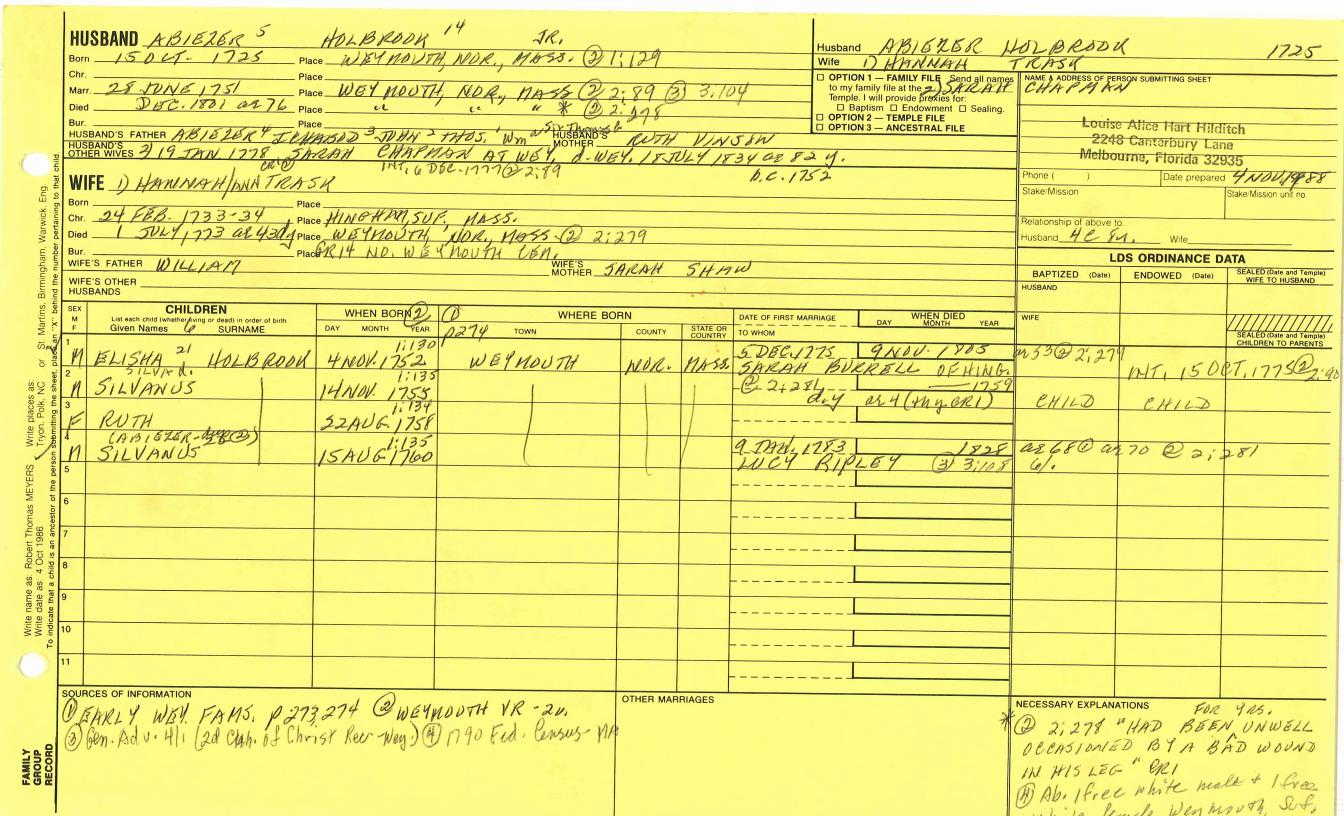 HUSBAND ABIEZER 5 HOLBROOK 14 JR.
Born 15 OCT. 1725 Place WEYMOUTH, NOR., MASS. ② 1:129
Chr. Place
Marr. 28 JUNE 1751 Place WEYMOUTH, NOR., MASS ② 2:89 ③ 3:104
Died DEC. 1801 ae 76 Place " " " * ② 2:278
Bur. Place
HUSBAND'S FATHER ABIEZER 4 ICHABOD 3 JOHN 2 THOS. 1 Wm Sir Thomas HUSBAND'S MOTHER RUTH VINSON
HUSBAND'S OTHER WIVES 2) 19 JAN. 1778 SARAH CHAPMAN AT WEY. d. WEY. 18 JULY 1834 ae 82 y.
INT. 6 DEC. 1777 ② 2:89 b.c. 1752
WIFE 1) HANNAH/ANN TRASK
Born Place
Chr. 24 FEB. 1733-34 Place HINGHAM, SUF., MASS.
Died 1 JULY 1773 ae 43dy Place WEYMOUTH, NOR., MASS. ② 2:279
Bur. Place GR14 NO. WEYMOUTH CEM.
WIFE'S FATHER WILLIAM WIFE'S MOTHER SARAH SHAW
WIFE'S OTHER HUSBANDS
Husband ABIEZER HOLBROOK 1725
Wife 1) HANNAH TRASK
2) SARAH CHAPMAN
OPTION 1 — FAMILY FILE Send all names
to my family file at the
Temple. I will provide proxies for:
Baptism Endowment Sealing.
OPTION 2 — TEMPLE FILE
OPTION 3 — ANCESTRAL FILE
NAME & ADDRESS OF PERSON SUBMITTING SHEET
Louise Alice Hart Hilditch
2248 Canterbury Lane
Melbourne, Florida 32935
Phone ( ) Date prepared 4 NOV. 1988
Stake/Mission Stake/Mission unit no.
Relationship of above to:
Husband 4C 8R. Wife
LDS ORDINANCE DATA
BAPTIZED (Date) ENDOWED (Date) SEALED (Date and Temple) WIFE TO HUSBAND
HUSBAND
WIFE
SEALED (Date and Temple) CHILDREN TO PARENTS
SEX M F
CHILDREN
List each child (whether living or dead) in order of birth
Given Names 6 SURNAME
WHEN BORN ②
DAY MONTH YEAR
① p274 WHERE BORN
TOWN COUNTY STATE OR COUNTRY
DATE OF FIRST MARRIAGE
TO WHOM
WHEN DIED
DAY MONTH YEAR
1 M ELISHA 21 HOLBROOK 1:130 4 NOV. 1752 WEYMOUTH NOR. MASS. 5 DEC. 1775 9 NOV. 1805 ae 53 ② 2:279
SARAH BURRELL OF HING. INT. 15 OCT. 1775 ② 2:90
2 M SILVANUS 1:135 14 NOV. 1755 ② 2:281 1759
d.y. ae 4 CHILD CHILD
3 F RUTH 1:134 22 AUG. 1758
4 M SILVANUS 1:135 15 AUG. 1760 9 JAN. 1783 1828 ae 68 ① ae 70 ② 2:281
LUCY RIPLEY ③ 3:108
5
6
7
8
9
10
11
SOURCES OF INFORMATION
① EARLY WEY. FAMS. p 273, 274 ② WEYMOUTH VR - 2v.
③ Gen. Adv. 4/1 (2d Chh. of Christ Rec - Wey.) ④ 1790 Fed. Census - MA
OTHER MARRIAGES
NECESSARY EXPLANATIONS
FOR YRS.
* ② 2:278 "HAD BEEN UNWELL
OCCASIONED BY A BAD WOUND
IN HIS LEG" CR1
④ Ab. 1 free white male + 1 free
white female Weymouth, Suf.,
Write name as: Robert Thomas MEYERS Write places as: Tryon, Polk, NC or St Martins, Birmingham, Warwick, Eng.
Write date as: 4 Oct 1986
To indicate that a child is an ancestor of the person submitting the sheet, place an "X" behind the number pertaining to that child
FAMILY GROUP RECORD